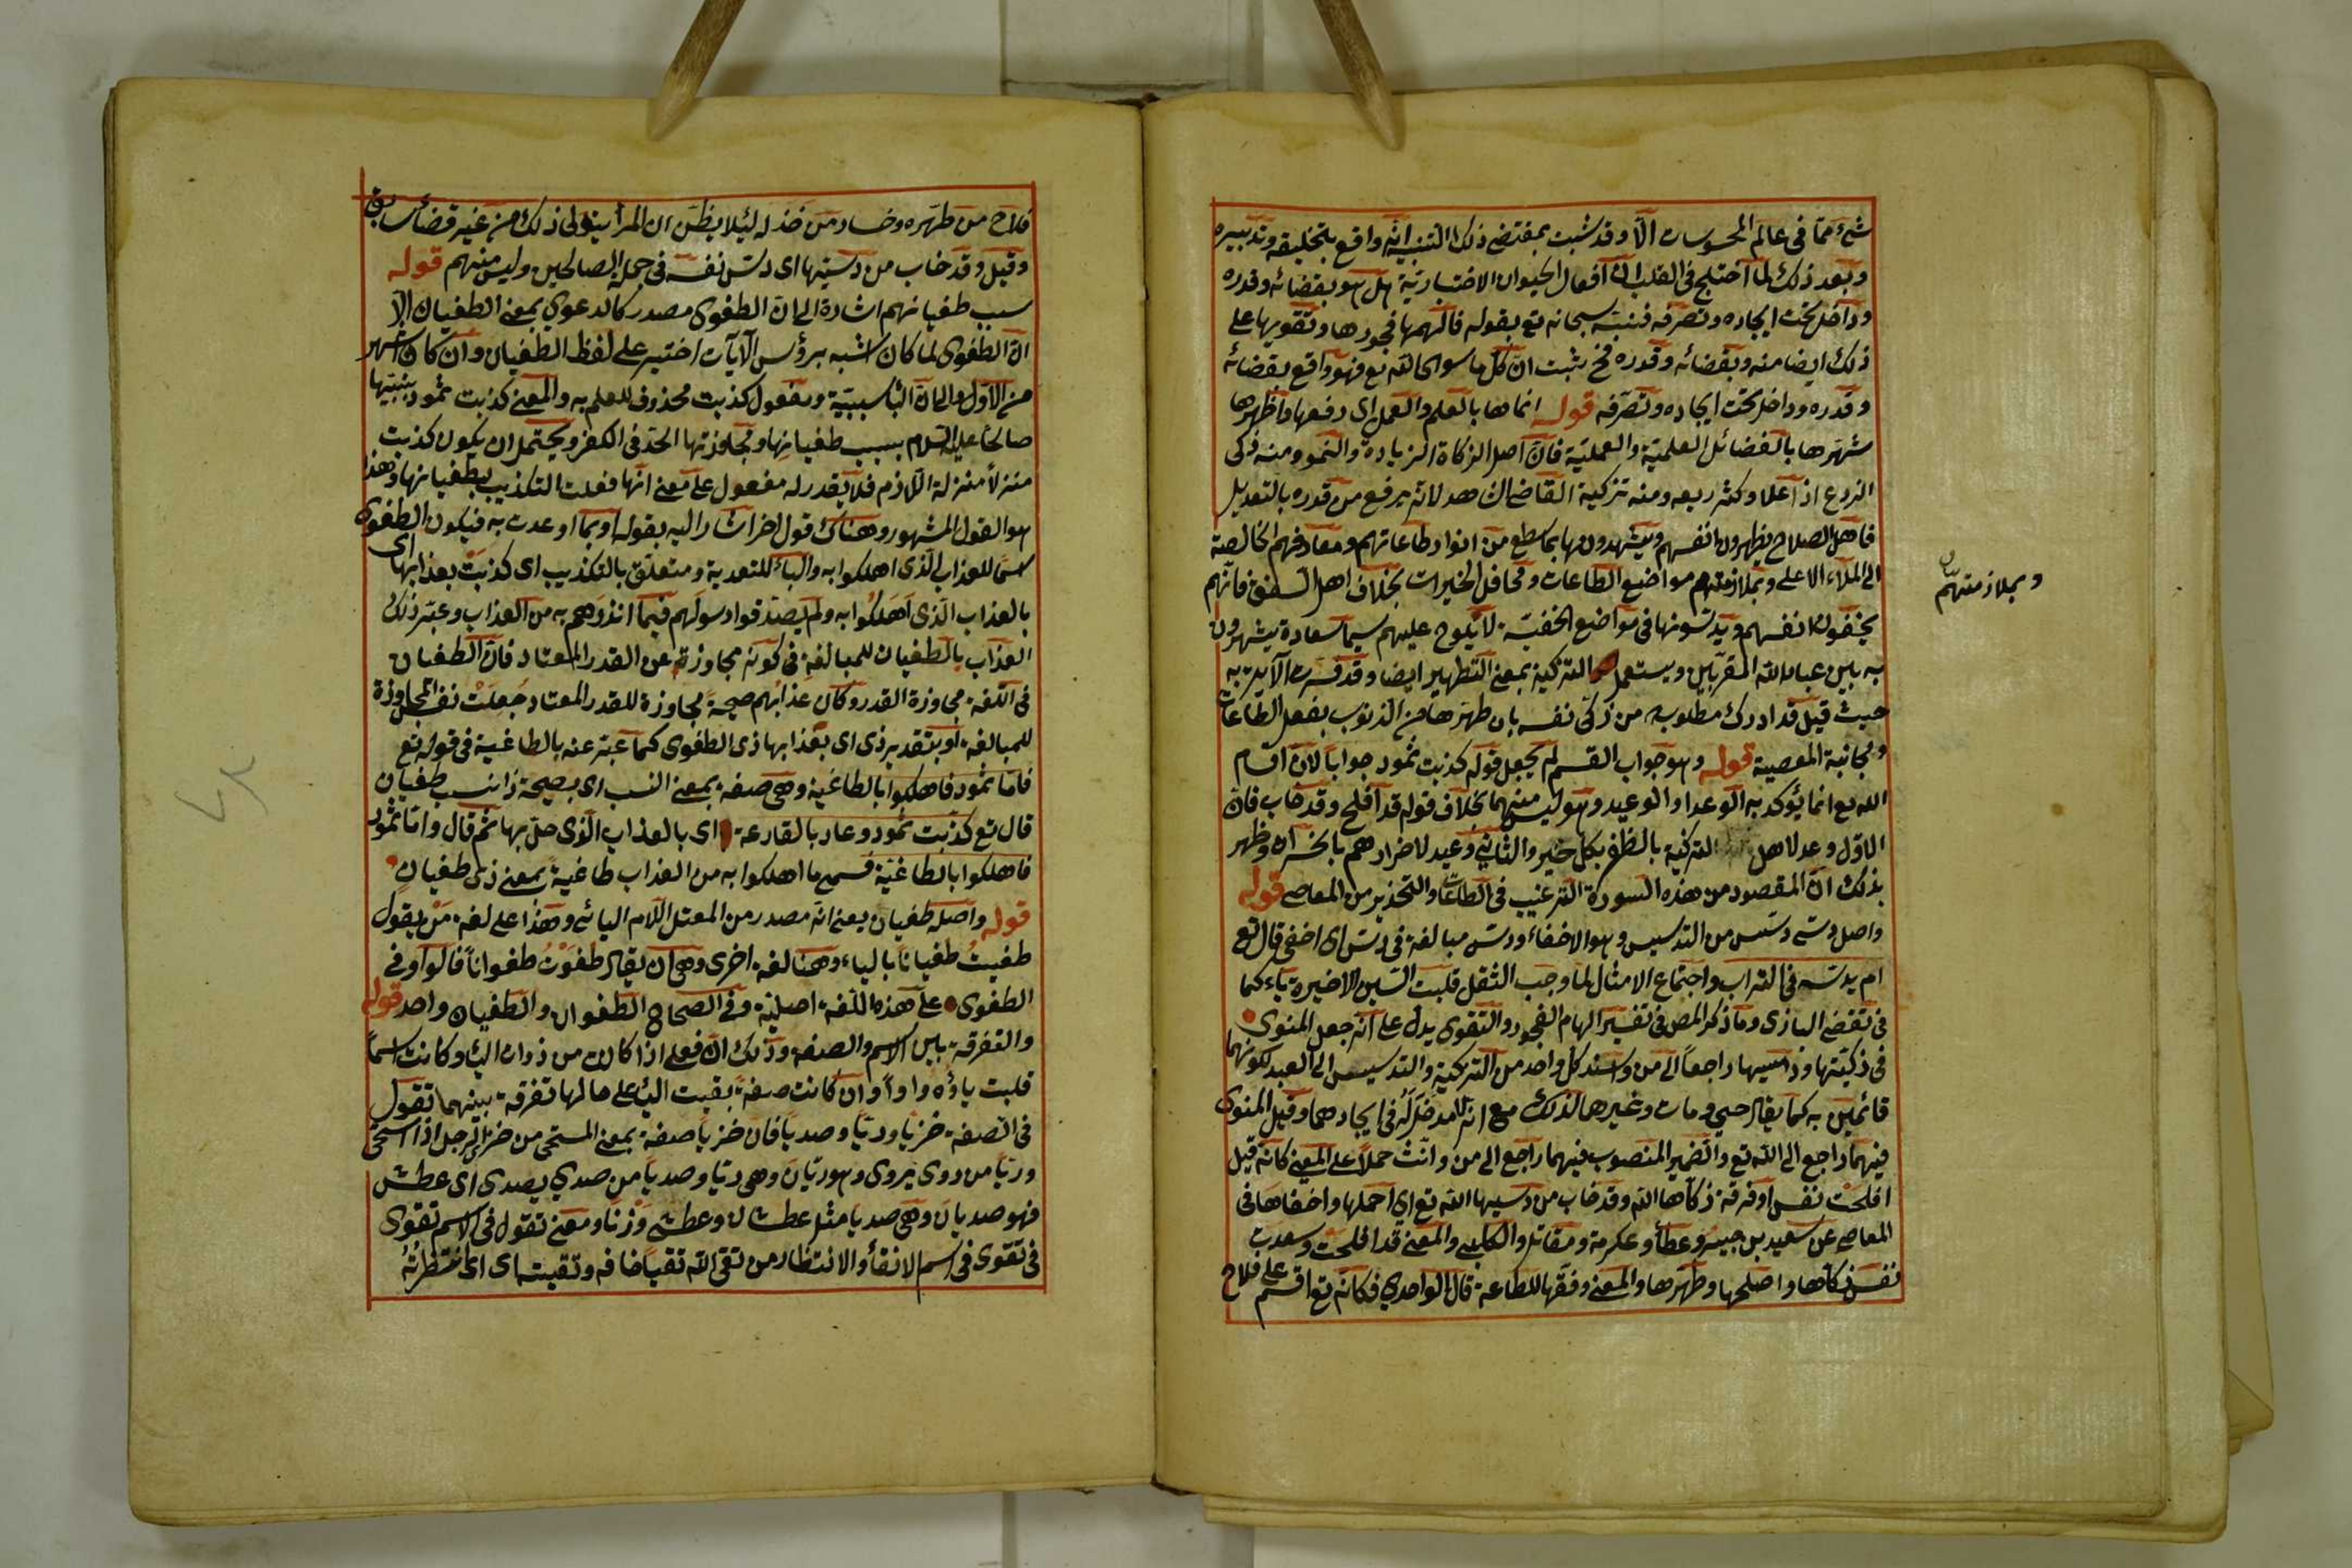 شئ مما فى عالم المحسوسات الا وقد ثبت بمقتضى ذلك التنبيه انه واقع بتخليقه وتدبيره
وبعد ذلك لما اختلج فى القلب ان افعال الحيوان الاختيارية هل هو بقضائه وقدره
وداخل تحت ايجاده وتصرفه فنبه سبحانه تع بقوله فالهمها فجورها وتقويها على
ذلك ايضا منه وبقضائه وقدره فح يثبت ان كل ما سوى الله تع فهو واقع بقضائه
وقدره وداخل تحت ايجاده وتصرفه قوله انماها بالعلم والعمل اى رفعها واظهرها
شهرها بالفضائل العلمية والعملية فان اصل الزكاة الزيادة والنمو ومنه زكى
الزرع اذا علا وكثر ريعه ومنه تزكية القاضى الشاهد لانه يرفع من قدره بالتعديل
فاهل الصلاح يظهرون انفسهم ويشهدونها بما سطع من انوار طاعاتهم ومعارفهم الخالصة
الى الملاء الاعلى وبملازمتهم مواضع الطاعات ومحافل الخيرات بخلاف اهل الفسق فانهم
يخفون انفسهم ويدسونها فى مواضع الخفية لا يلوح عليهم سيما سعادة يشهرون
به بين عباد الله المقربين ويستعمل التزكية بمعنى التطهير ايضا وقد فسرت الآية به
حيث قيل قد ادرك مطلوبه من زكى نفسه بان طهرها من الذنوب بفعل الطاعات
ومجانبة المعصية قوله وهو جواب القسم لم يجعل قوله كذبت ثمود جوابا لان اقسام
الله تع انما يؤكد به الوعد او الوعيد وهو ليس منهما بخلاف قوله قد افلح وقد خاب فان
الاول وعد لاهل التزكية بالظفر بكل خير والثانى وعيد لاضرارهم بالخسران وظهر
بذلك ان المقصود من هذه السورة الترغيب فى الطاعات والتحذير من المعاصى قوله
واصل دسى دسس من التدسيس وهو الاخفاء ودسس مبالغة فى دس اى اخفى قال تع
ام يدسه فى التراب واجتماع الامثال لما وجب الثقل قلبت السين الاخيرة ياء كما
فى تقضى البازى وما ذكر المص فى تفسير الهام الفجور والتقوى يدل على انه جعل المنوى
فى زكيها ودسيها راجعا الى من واسند كل واحد من التزكية والتدسيس الى العبد لكونهما
قائمين به كما يقال حيى ومات وغيرهما لذلك مع انه لا مدخل له فى ايجادهما وقيل المنوى
فيهما راجع الى الله تع والضمير المنصوب فيهما راجع الى من وانث حملا على المعنى كانه قيل
افلحت نفس او فرقة زكاها الله وقد خاب من دسيها الله تع اى اخملها واخفاها فى
المعاصى عن سعيد بن جبير وعطأ وعكرمة ومقاتل والكلبى والمعنى قد افلحت وسعدت
نفس زكاها واصلحها وطهرها والمعنى وفقها للطاعة قال الواحدي فكانه تع اقسم على فلاح
وبملازمتهم
فلاح من طهره وخسار من خذله ليلا يظن ان المرأ يتولى ذلك من غير قضأ سابق
وقيل وقد خاب من دسيها اى دس نفسه فى جملة الصالحين وليس منهم قوله
بسبب طغيانهم اشارة الى ان الطغوى مصدر كالدعوى بمعنى الطغيان الا
ان الطغوى لما كان اشبه برؤس الآيات اختير على لفظ الطغيان وان كان اشهر
من الاول والى ان البأ سببية ومفعول كذبت محذوف للعلم به والمعنى كذبت ثمود بنبيها
صالحا عليه السلام بسبب طغيانها ومجاوزتها الحد فى الكفر ويحتمل ان يكون كذبت
منزلا منزلة اللازم فلا يقدر له مفعول على معنى انها فعلت التكذيب بطغيانها وهذا
هو القول المشهور وهناك قول اخر اشار اليه بقوله او بما اوعدت به فيكون الطغوى
اسما للعذاب الذى اهلكوا به والبأ للتعدية ومتعلق بالتكذيب اى كذبت بعذابها اى
بالعذاب الذى اهلكوا به ولم يصدقوا رسولهم فيما انذرهم به من العذاب وعبر ذلك
العذاب بالطغيان للمبالغة فى كونه مجاوزة عن القدر المعتاد فان الطغيان
فى اللغة مجاوزة القدر وكان عذابهم صيحة مجاوزة للقدر المعتاد جعلت نفس المجاوزة
للمبالغة او بتقدير ذى اى بعذابها ذى الطغوى كما عبر عنه بالطاغية فى قوله تع
فاما ثمود فاهلكوا بالطاغية وهى صفة بمعنى النسب اى بصيحة ذات طغيان
قال تع كذبت ثمود وعاد بالقارعة اى بالعذاب الذى حل بها ثم قال واما ثمود
فاهلكوا بالطاغية فسمى ما اهلكوا به من العذاب طاغية بمعنى ذى طغيان
قوله واصله طغيان يعنى انه مصدر من المعتل اللام اليائى وهذا على لغة من يقول
طغيت طغيانا بالياء وهنا لغة اخرى وهى ان يقال طغوت طغوانا فالواو فى
الطغوى على هذه اللغة اصلية وفى الصحاح الطغوان والطغيان واحد قوله
والتفرقة بين الاسم والصفة وذلك ان فعلى اذا كان من ذوات اليأ وكانت اسما
قلبت ياؤه واوا وان كانت صفة بقيت اليأ على حالها تفرقة بينهما تقول
فى الصفة خزيا وريا وصديا فان خزيا صفة بمعنى المستحى من خزى الرجل اذا استحى
وريا من روى يروى وهو ريان وهى ريا وصديا من صدي يصدى اى عطش
فهو صديان وهى صديا مثل عطشان وعطشى وزنا ومعنى تقول فى الاسم تقوى
فى تقوى فى اسم الاتقأ والانتظار من تقى الله تقيا خافه وتقيته اى انتظرته